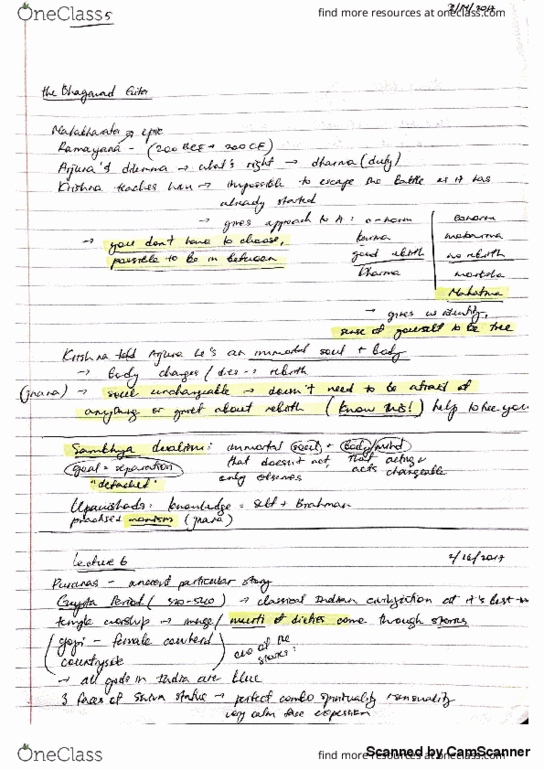 OneClass 5
find more resources at oneclass.com
the Bhagavad Gita
Mahabharata → epic
Ramayana - (200 BCE → 200 CE)
Arjuna's dilemma → what's right → dharma (duty)
Krishna teaches him → impossible to escape the battle as it has
already started
→ gives approach to it:
→ you don't have to choose,
possible to be in between
karma
good rebirth
Dharma
no rebirth
moksha
→ gives up identity,
sense of yourself to be free
Krishna told Arjuna he's an immortal soul + body
→ body changes / dies → rebirth
(jnana) → soul unchangeable → doesn't need to be afraid of
anything or grief about rebirth (know this!) help to free you
Samkhya dualism: immortal soul + body/mind
goal = separation
that doesn't not,
only observes
that acting +
acts changeable
"detached"
Upanishads: knowledge = self + Brahman
practised monism (jnana)
Lecture 6
2/16/2017
Puranas - ancient particular story
Gupta Period (320-540) → classical Indian civilization at it's best
temple worship → image / murti of dieties come through stories
gopi - female cowherd
countryside
one of the
stories:
→ all gods in India are blue
3 faces of Shiva statue → perfect combo spirituality sensuality
very calm face expression
OneClass
find more resources at oneclass.com
Scanned by CamScanner